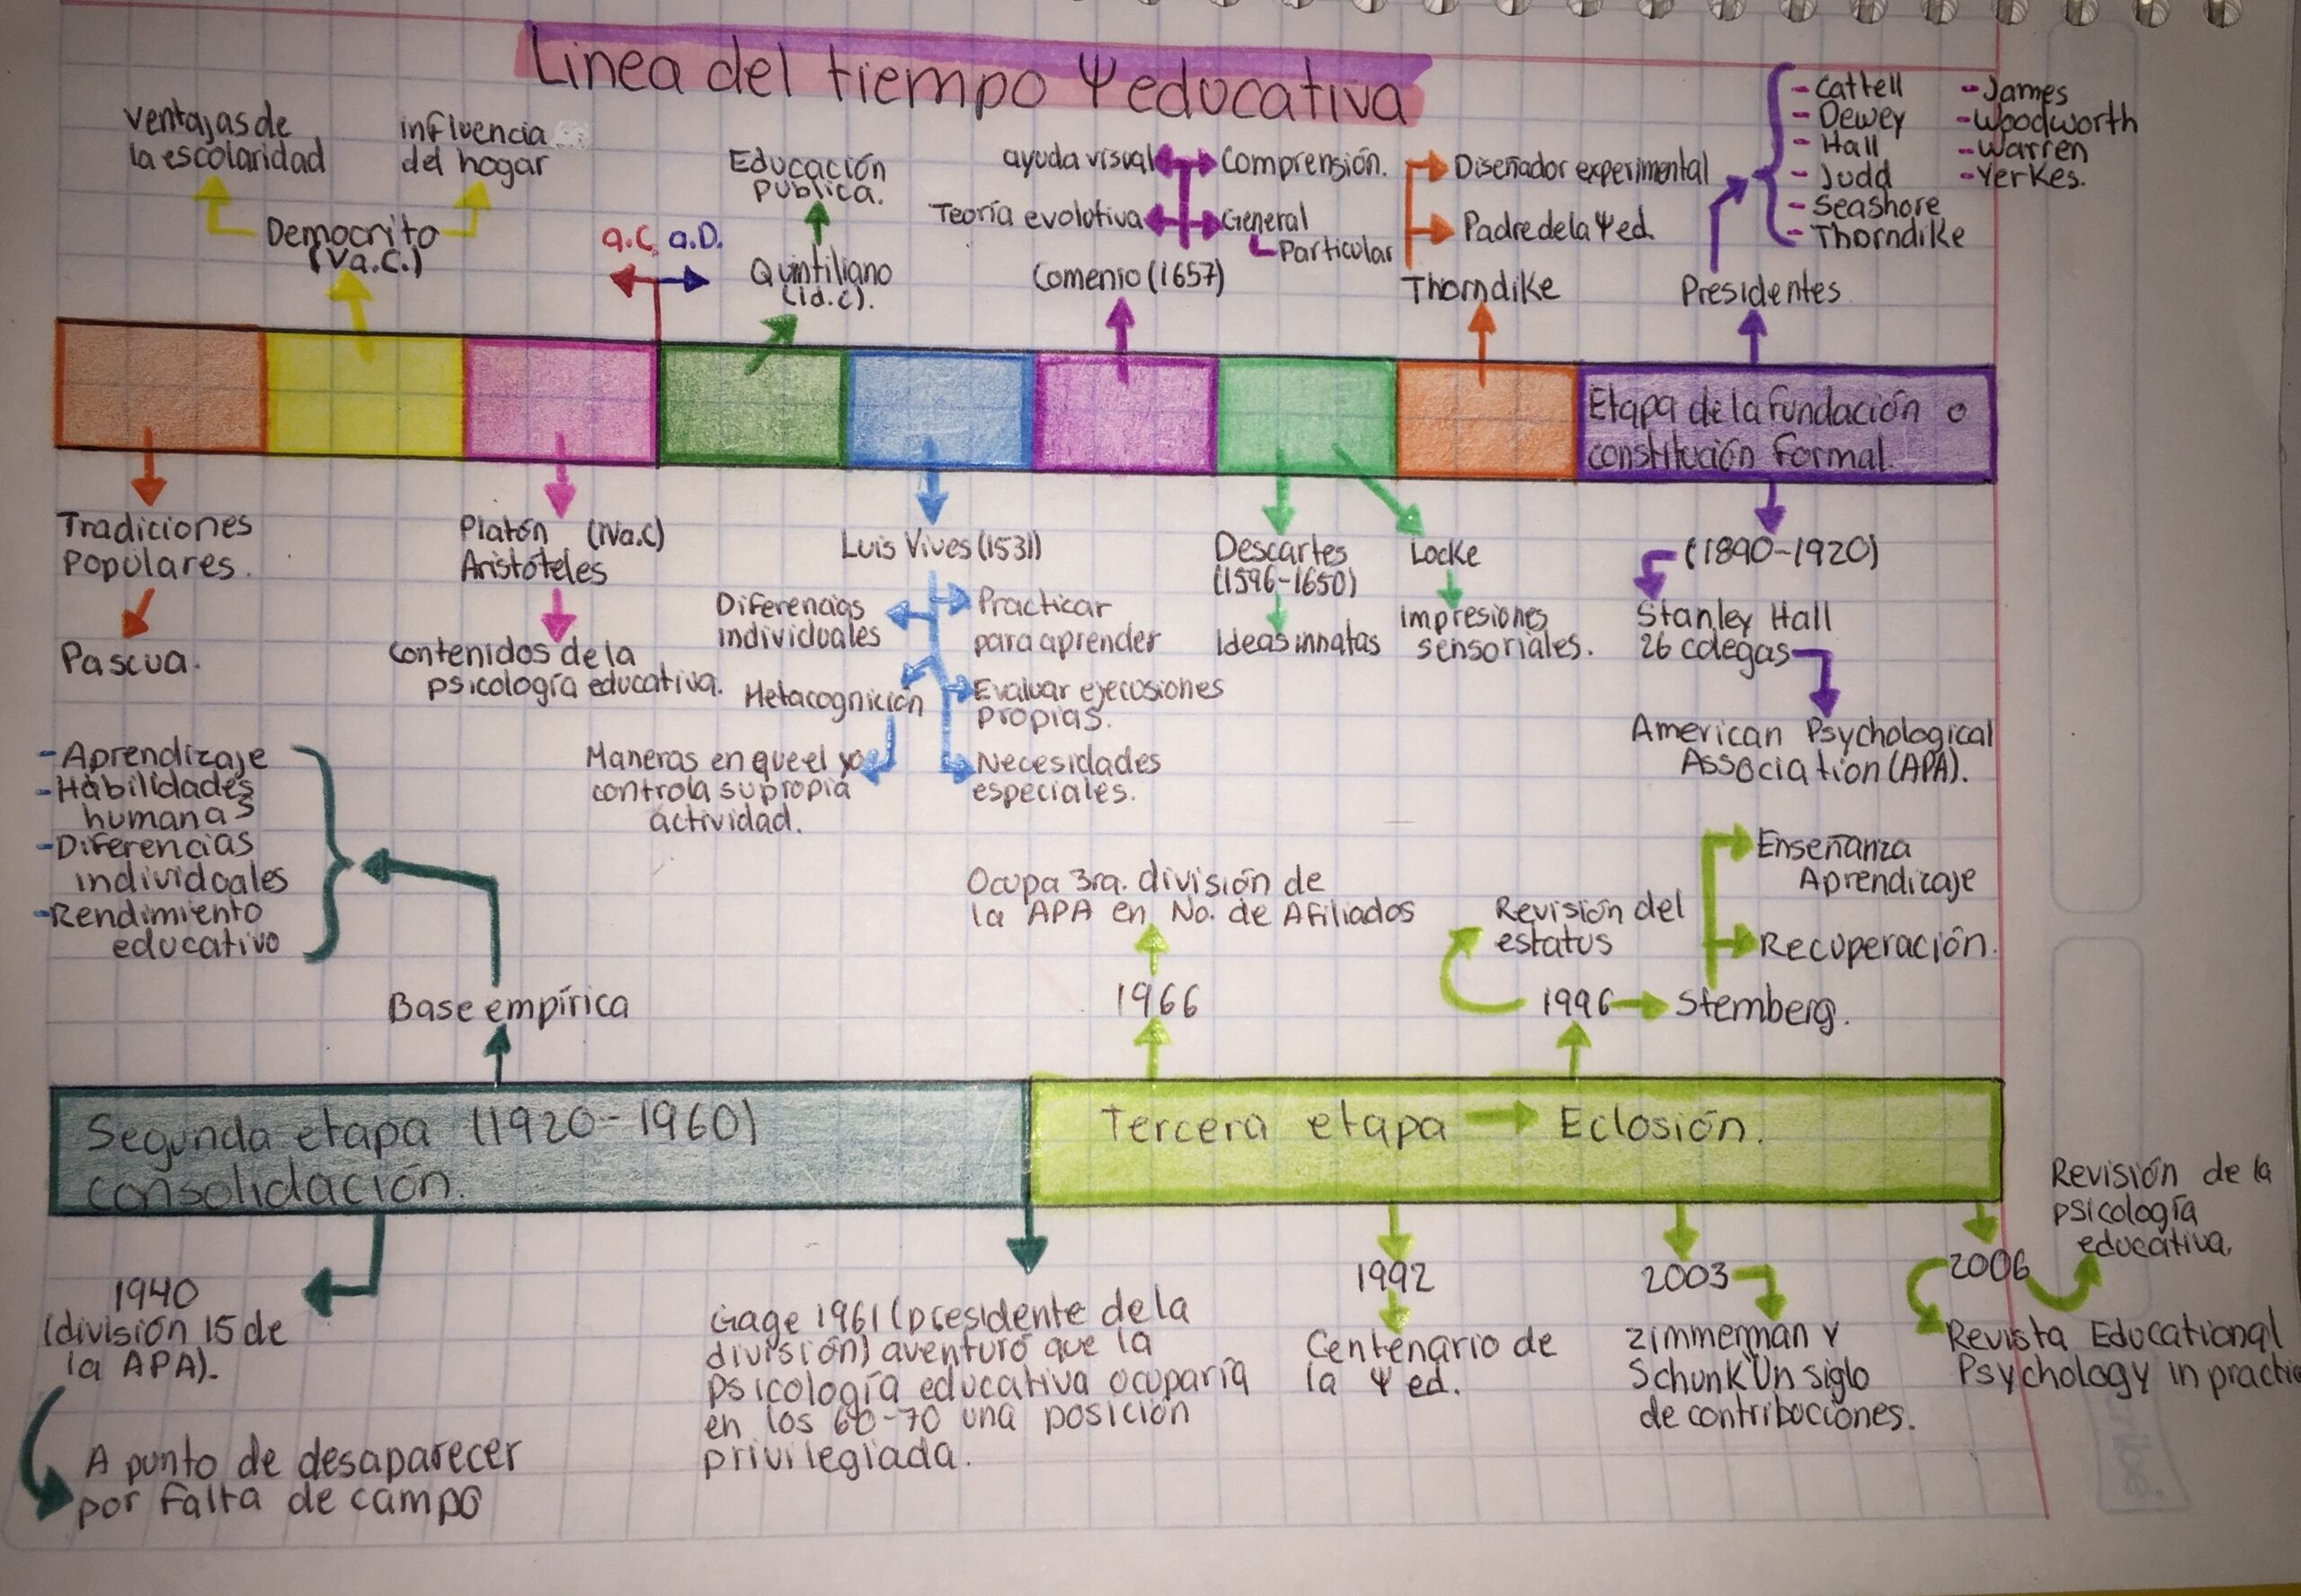 Linea del tiempo Ψ educativa
ventajas de
la escolaridad
influencia
del hogar
Democrito
(Va.C.)
a.C. a.D.
Educación
publica.
Quintiliano
(Id.C).
ayuda visual
Comprensión.
Teoría evolutiva
General
Particular
Comenio (1657)
Diseñador experimental
Padre de la Ψ ed.
Thorndike
- Cattell
- Dewey
- Hall
- Judd
- Seashore
- Thorndike
- James
- Woodworth
- Warren
- Yerkes.
Presidentes
Etapa de la fundación o
constitución formal.
Tradiciones
Populares.
Pascua.
Platón (IVa.C)
Aristóteles
Contenidos de la
psicología educativa.
Luis Vives (1531)
Diferencias
individuales
Practicar
para aprender
Metacognición
Evaluar ejecusiones
propias.
Maneras en que el yo
controla su propia
actividad.
Necesidades
especiales.
Descartes
(1596-1650)
Ideas innatas
Locke
Impresiones
sensoriales.
(1890-1920)
Stanley Hall
26 colegas
American Psychological
Association (APA).
- Aprendizaje
- Habilidades
humanas
- Diferencias
individuales
- Rendimiento
educativo
Base empírica
Ocupa 3ra. división de
la APA en No. de Afiliados
1966
Revisión del
estatus
1996
Sternberg.
Enseñanza
Aprendizaje
Recuperación.
Segunda etapa (1920-1960)
consolidación.
Tercera etapa → Eclosión.
1940
(división 15 de
la APA).
A punto de desaparecer
por falta de campo
Gage 1961 (presidente de la
división) aventuró que la
psicología educativa ocuparía
en los 60-70 una posición
privilegiada.
1992
Centenario de
la Ψ ed.
2003
Zimmerman y
Schunk Un siglo
de contribuciones.
2006
Revisión de la
psicología
educativa.
Revista Educational
Psychology in practic